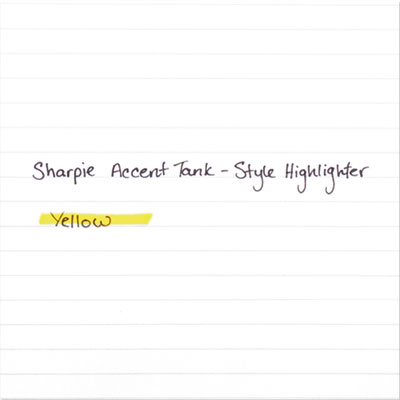 Sharpie Accent Tank - Style Highlighter
Yellow